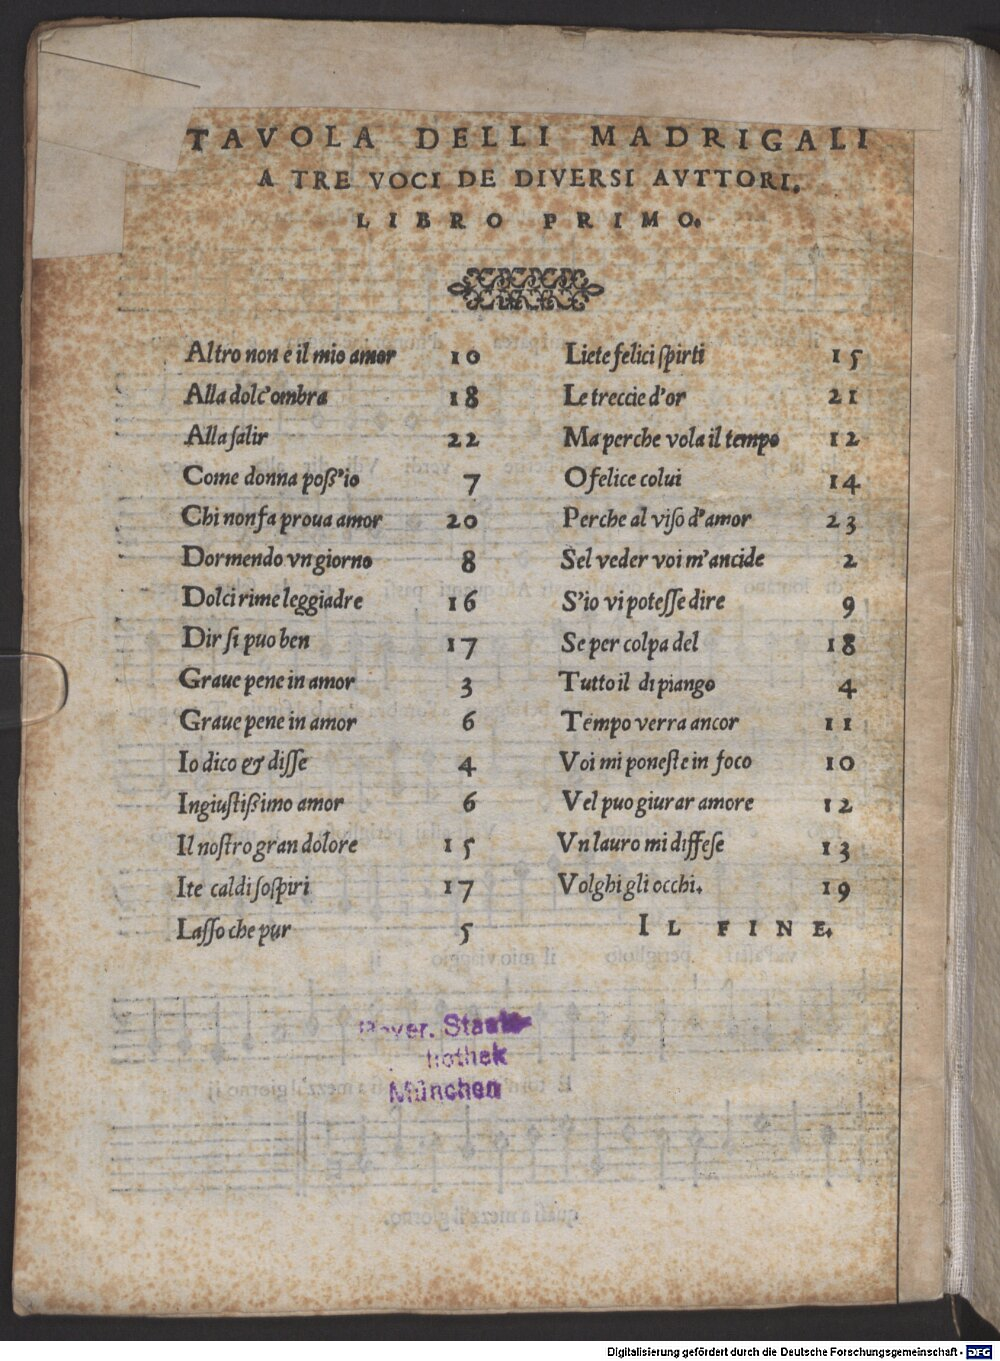 TAVOLA DELLI MADRIGALI
A TRE VOCI DE DIVERSI AVTTORI.
LIBRO PRIMO.
Altro non e il mio amor 10
Alla dolc'ombra 18
Alla salir 22
Come donna poss'io 7
Chi non fa proua amor 20
Dormendo vn giorno 8
Dolci rime leggiadre 16
Dir si puo ben 17
Graue pene in amor 3
Graue pene in amor 6
Io dico & disse 4
Ingiustissimo amor 6
Il nostro gran dolore 15
Ite caldi sospiri 17
Lasso che pur 5
Liete felici spirti 15
Le treccie d'or 21
Ma perche vola il tempo 12
O felice colui 14
Perche al viso d'amor 23
Sel veder voi m'ancide 2
S'io vi potesse dire 9
Se per colpa del 18
Tutto il di piango 4
Tempo verra ancor 11
Voi mi poneste in foco 10
Vel puo giurar amore 12
Vn lauro mi diffese 13
Volghi gli occhi. 19
IL FINE.
Bayer. Staats-
München
Digitalisierung gefördert durch die Deutsche Forschungsgemeinschaft - DFG